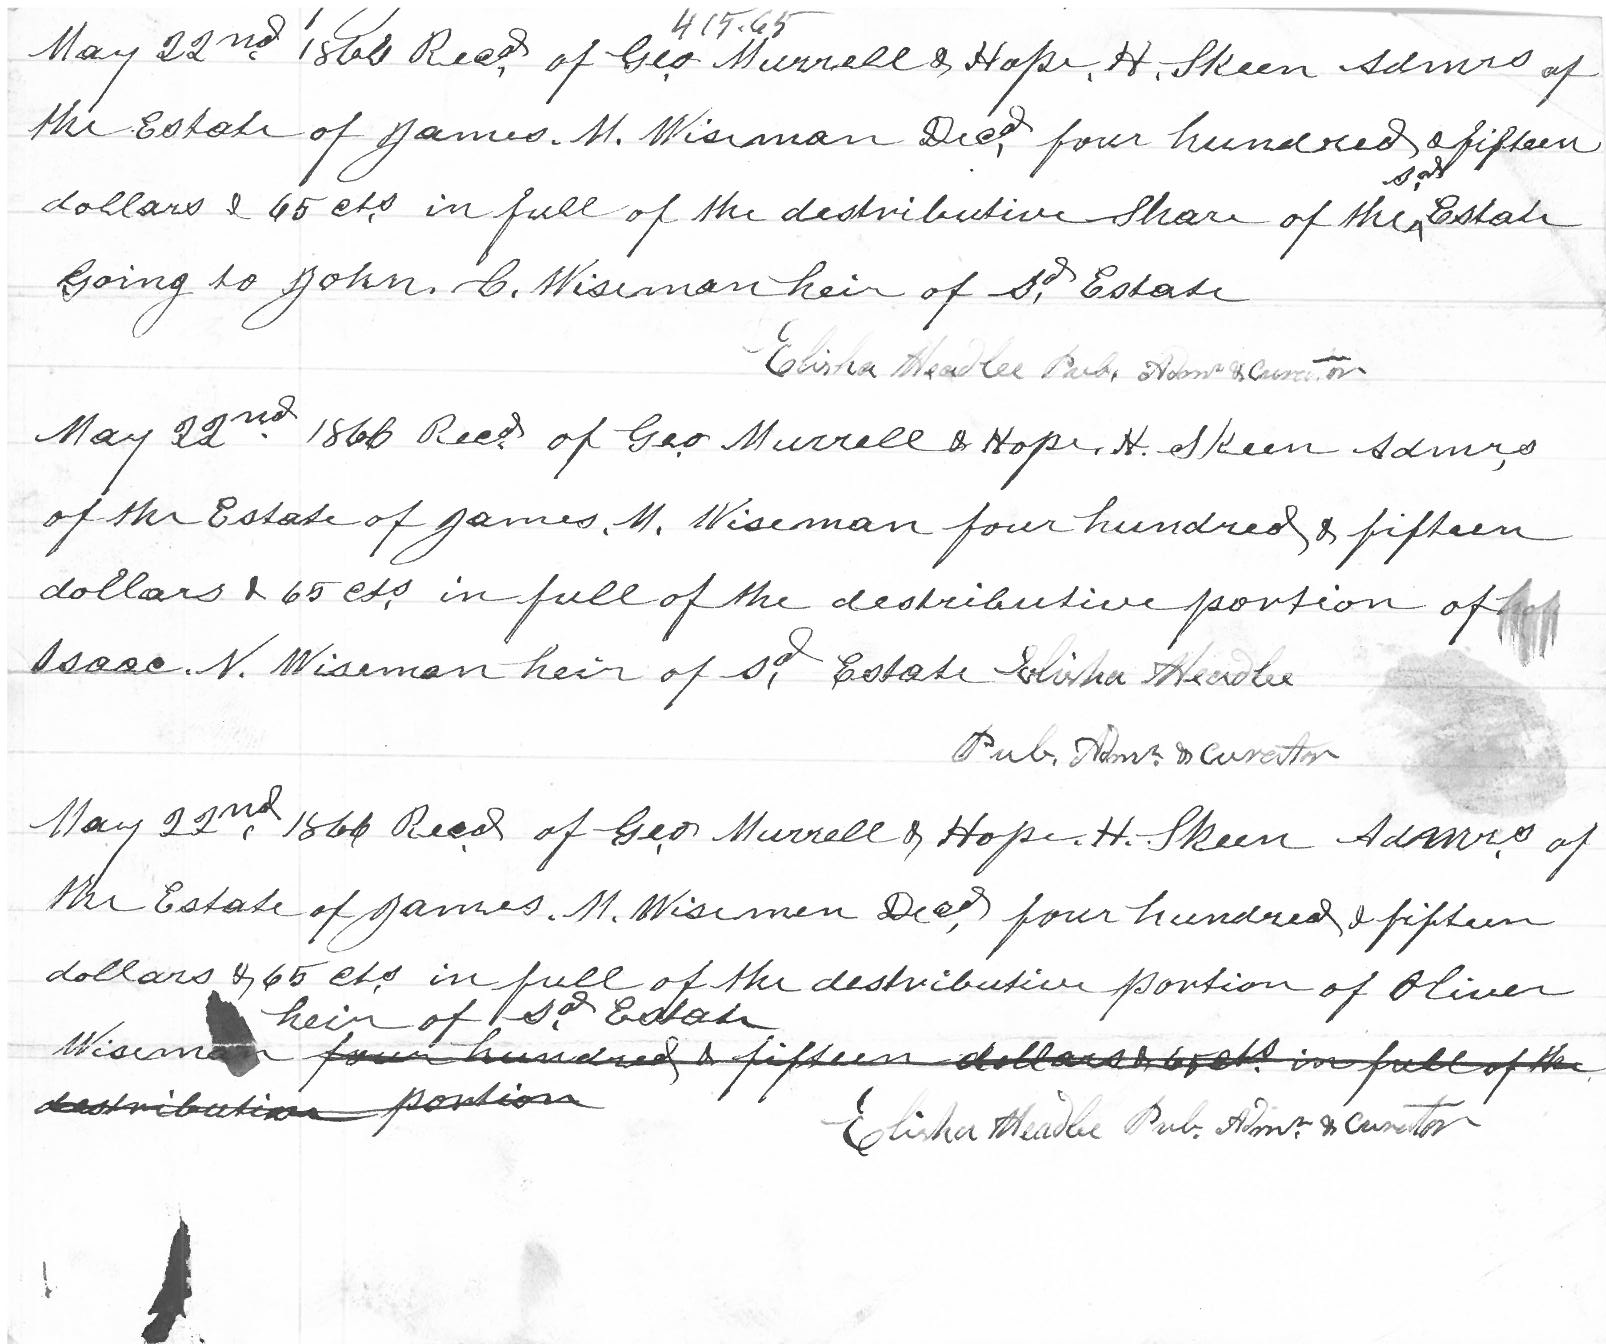 415.65
May 22nd 1866 Recd. of Geo Murrell & Hope. H. Skeen Admrs of
the Estate of James. M. Wiseman Decd, four hundred & fifteen
sd
dollars & 65 cts in full of the destributive Share of the ^ Estate
Going to John. C. Wiseman heir of Sd, Estate
Elisha Headlee Pub. Admr & Curator
May 22nd. 1866 Recd. of Geo Murrell & Hope. H. Skeen Admrs
of the Estate of James. M. Wiseman four hundred & fifteen
dollars & 65 cts in full of the destributive portion of
Isaac. N. Wiseman heir of Sd, Estate Elisha Headlee
Pub. Admr. & Curator
May 22nd, 1866 Recd of Geo Murrell & Hope. H. Skeen Admrs of
the Estate of James. M. Wisemen Decd, four hundred & fifteen
dollars & 65 cts in full of the destributive portion of Oliver
heir of Sd Estate
Wiseman four hundred & fifteen dollars & 65 cts. in full of the
destribution portion
Elisha Headlee Pub. Admr. & Curator